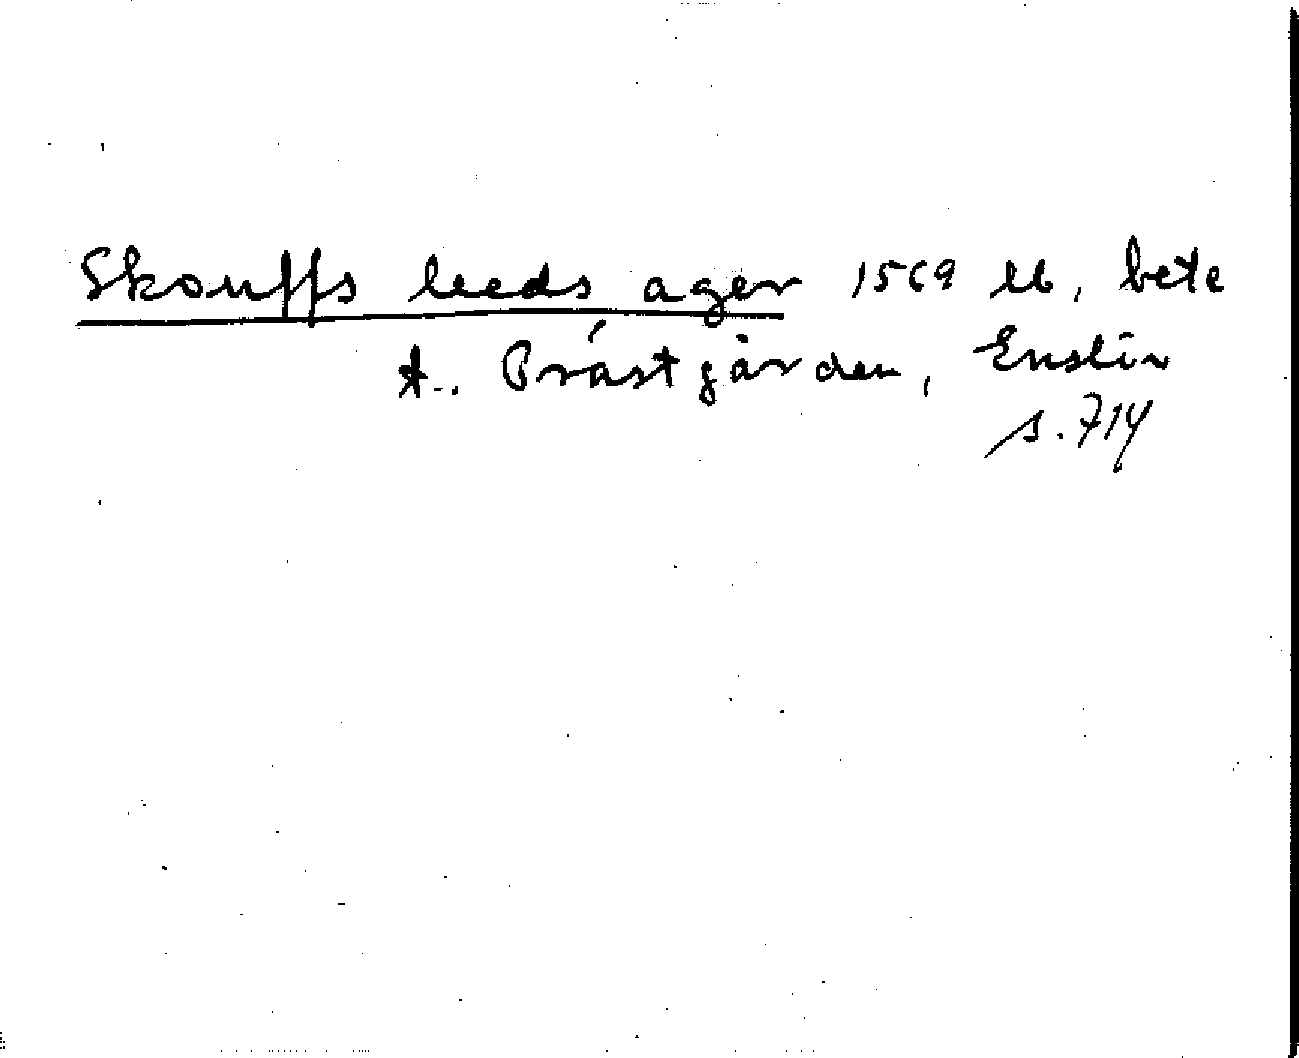 Skouffs leeds ager 1569 LLb, bete
t. Prästgården, Enslöv
s. 714